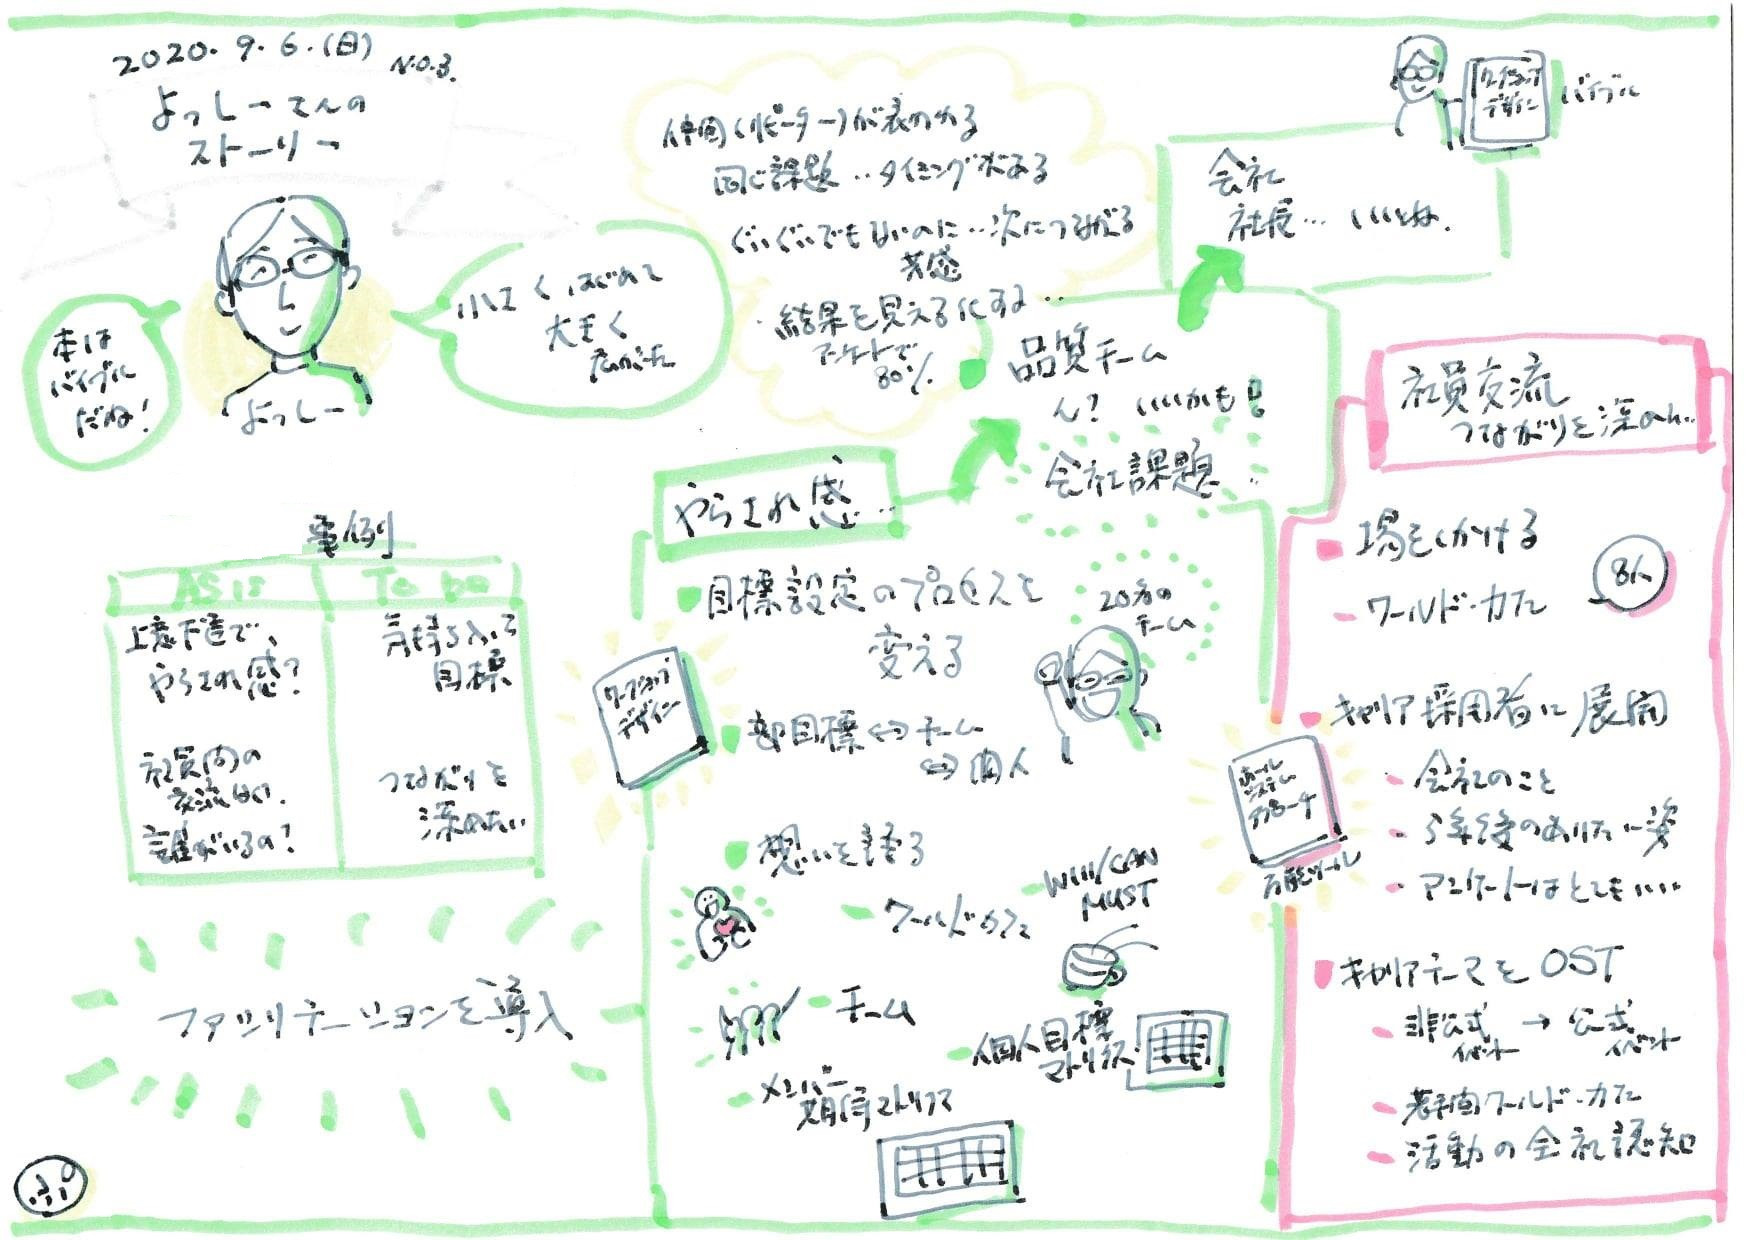 2020. 9. 6. (日)
NO.3.
よっしーさんの
ストーリー
本は
バイブル
だね!
よっしー
小さくはじめて
大きく
広がった
仲間(リピーター)が表われる
同じ課題‥タイミングがある
ぐいぐいでもないのに‥次につながる
共感
結果を見える化する‥
アンケートで
80%
ワークショップ
デザイン
バイブル
会社
社長… いいね.
品質チーム
ん? いいかも!
会社課題‥
やらされ感…
事例
AS is
To be
上意下達で、
やらされ感?
気持ち入って
目標
社員間の
交流ない.
誰がいるの?
つながりを
深めたい
ファシリテーションを導入
目標設定のプロセスを
変える
20名の
チーム
ワークショップ
デザイン
部目標⇔チーム
⇔個人
想いを語る
ワールドカフェ
WIll/CAN
MUST
チーム
個人目標
マトリクス
メンバー
期待マトリクス
社員交流
つながりを深めん‥
場をしかける
ワールド・カフェ
8人
キャリア採用者に展開
会社のこと
5年後のありたい姿
アンケートはとてもいい
ホール
システム
アプローチ
万能ツール
キャリアテーマを OST
非公式
イベント
→
公式
イベント
若手間ワールド・カフェ
活動の会社認知